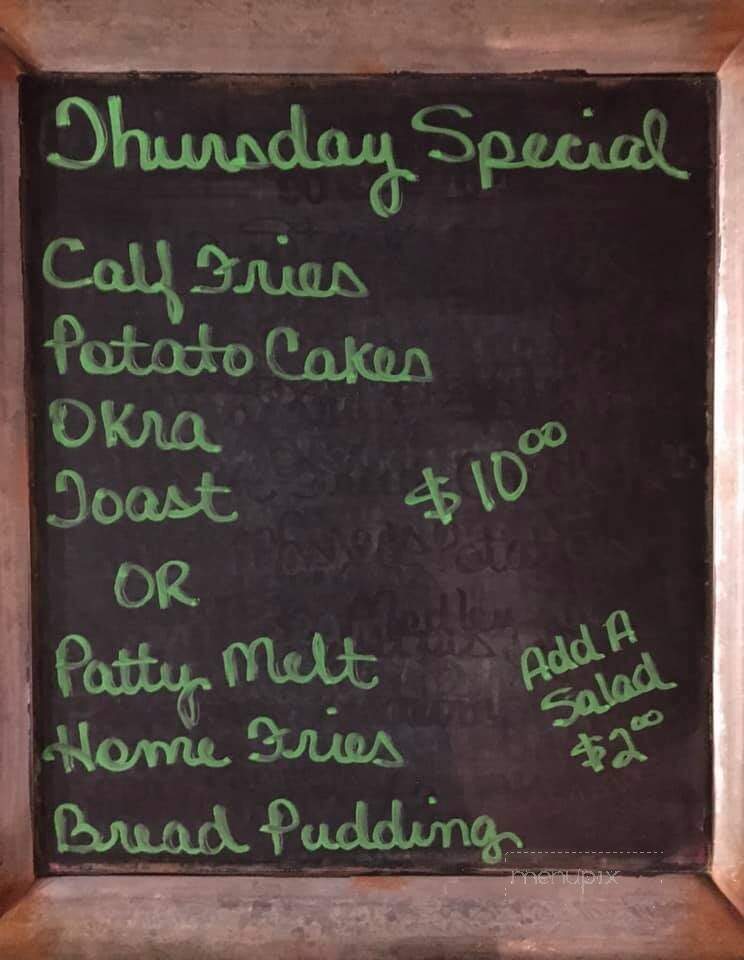 Thursday Special
Calf Fries
Potato Cakes
Okra
Toast
$10.00
OR
Patty Melt
Add A
Salad
$2.00
Home Fries
Bread Pudding
menupix